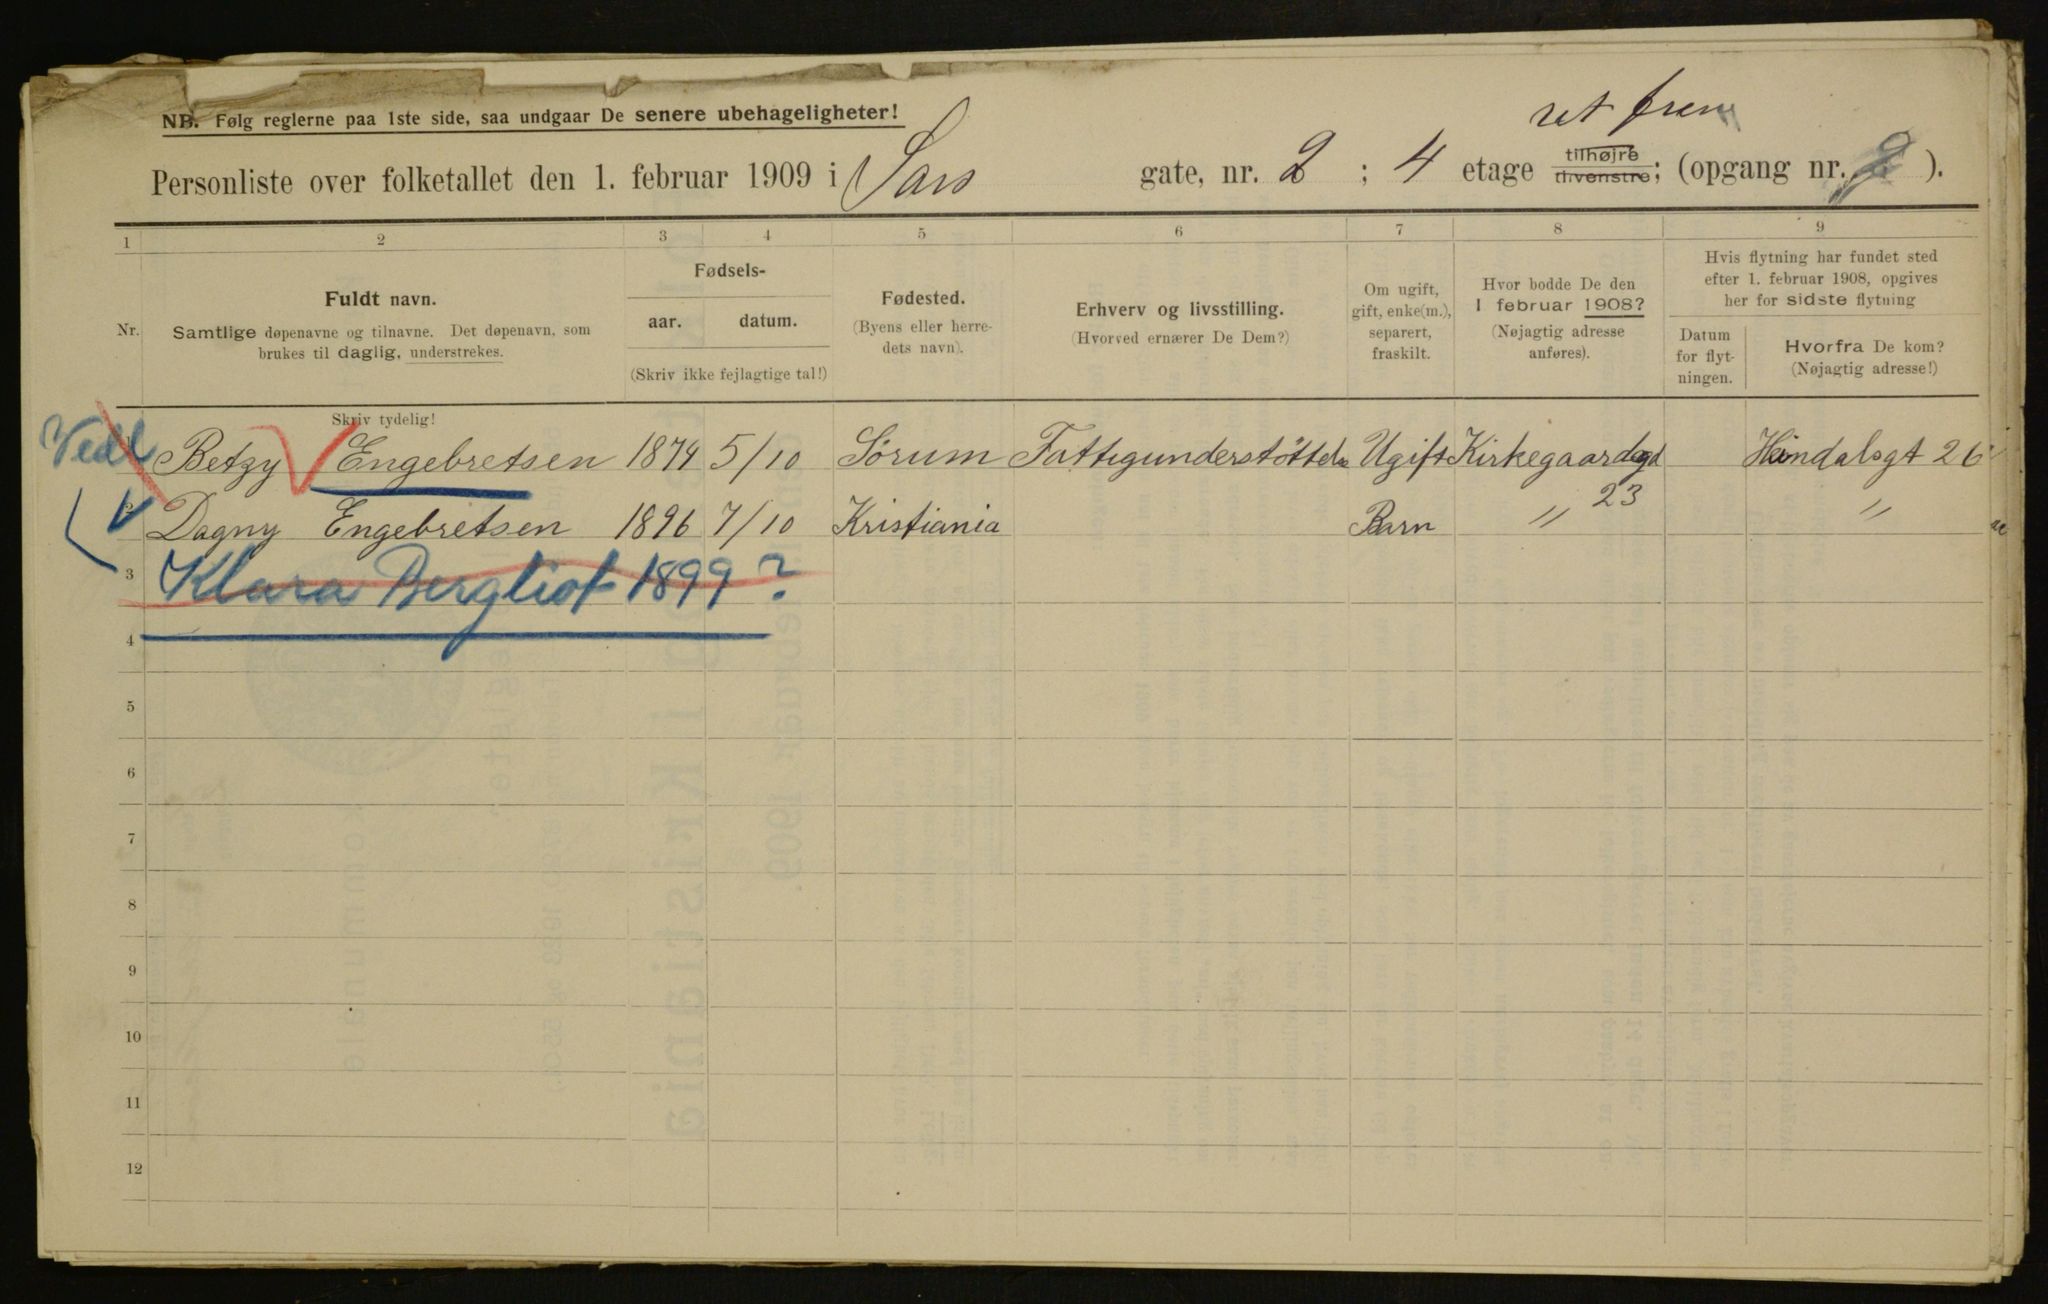 NB. Følg reglerne paa 1ste side, saa undgaar De senere ubehageligheter!
ret frem
Personliste over folketallet den 1. februar 1909 i Sars gate, nr. 2 ; 4 etage tilhøjre tilvenstre; (opgang nr. 2 ).
1 2 3 4 5 6 7 8 9
Nr.
Fuldt navn.
Samtlige døpenavne og tilnavne. Det døpenavn, som
brukes til daglig, understrekes.
Skriv tydelig!
Fødsels-
aar. datum.
(Skriv ikke fejlagtige tal!)
Fødested.
(Byens eller herre-
dets navn).
Erhverv og livsstilling.
(Hvorved ernærer De Dem?)
Om ugift,
gift, enke(m.),
separert,
fraskilt.
Hvor bodde De den
1 februar 1908?
(Nøjagtig adresse
anføres).
Hvis flytning har fundet sted
efter 1. februar 1908, opgives
her for sidste flytning
Datum
for flyt-
ningen.
Hvorfra De kom?
(Nøjagtig adresse!)
Vedl
1 Betzy Engebretsen 1874 5/10 Sörum Fattigunderstöttelse Ugift Kirkegaardsgd 23 Heimdalsgt 26
2 Dagny Engebretsen 1896 7/10 Kristiania Barn " "
3 Klara Bergliot 1899?
4
5
6
7
8
9
10
11
12